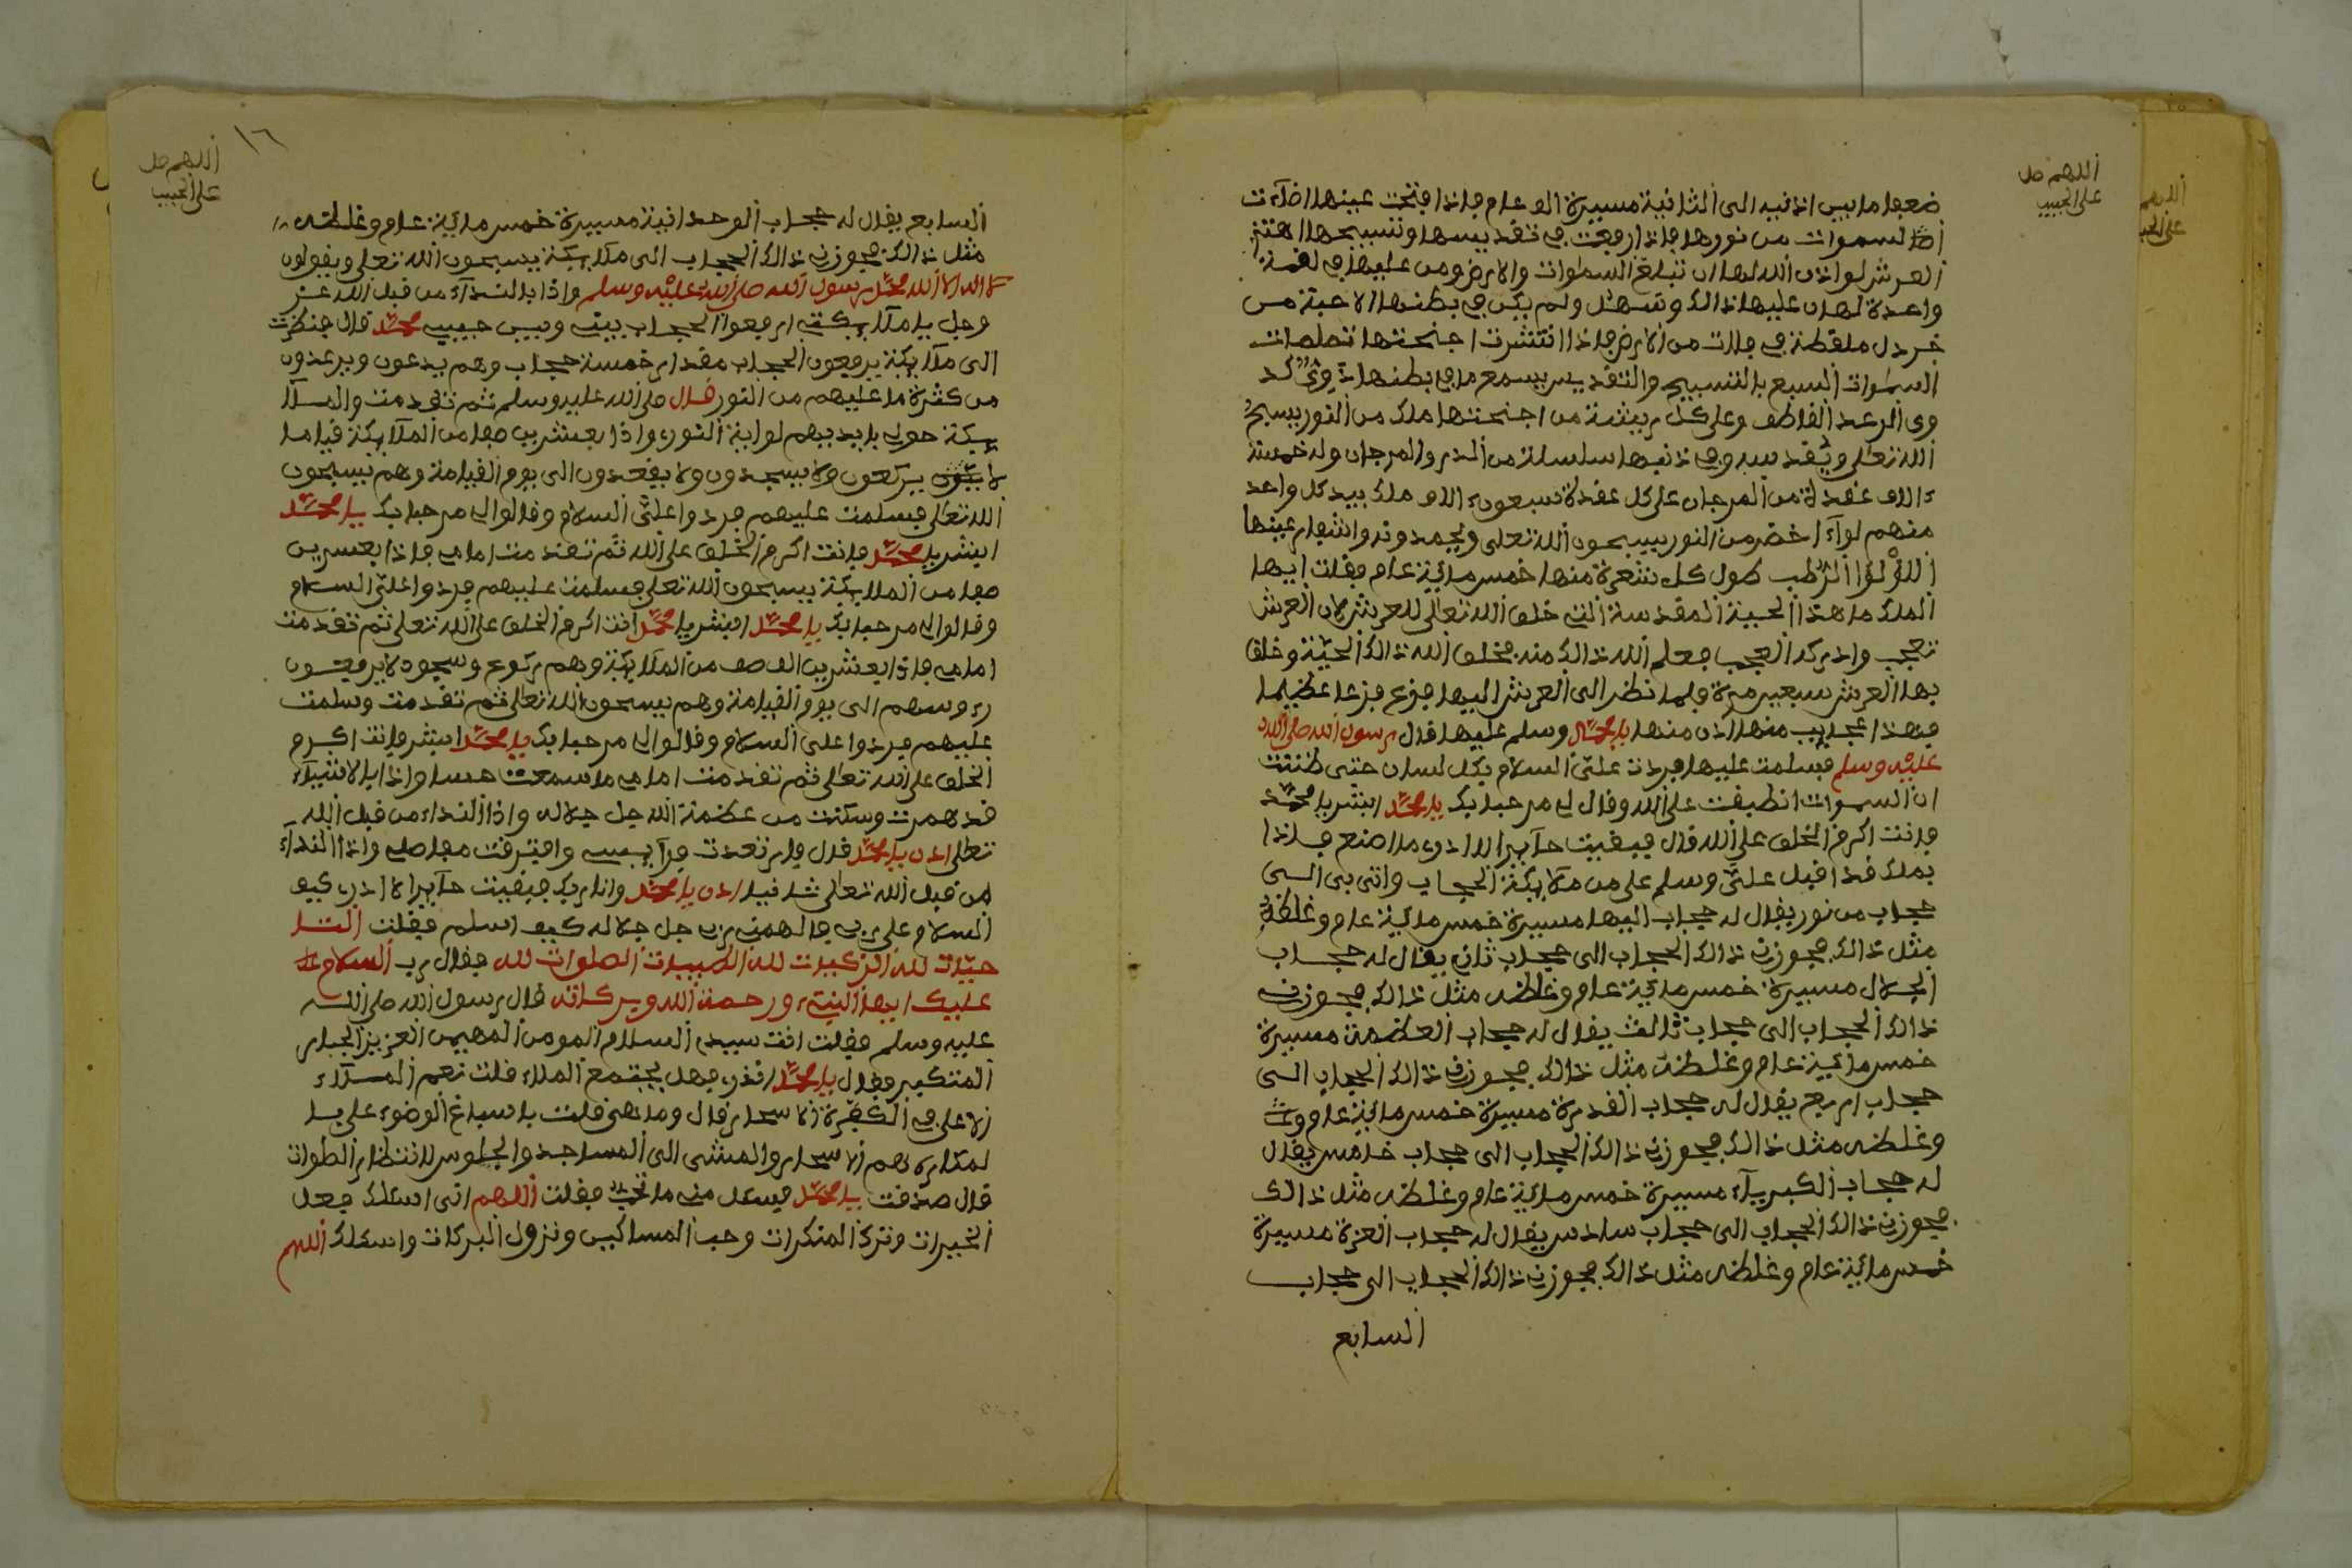 اللهم صل
على الحبيب
ضعبها ما بين اذنيه الى الثانية مسيرة الف عام فاذا فتحت عينها اضاءت
السموات من نورها فاذا رفعت في تقديسها وتسبيحها اهتز
العرش لو اذن الله لها ان تبلغ السماوات والارض ومن عليها في لقمة
واحدة لهان عليها ذالك وسهل ولم يكن في بطنها الا حبة من
خردل ملقطة في فلات من الارض فاذا انتشرت اجنحتها تململت
السماوات السبع بالتسبيح والتقديس يسمع ما في بطنها دوي كد
وى الرعد القاطف وعلى كل ريشة من اجنحتها ملك من النور يسبح
الله تعلى ويقدسه وفي ذنبها سلسلة من الدر والمرجان وله خمسة
ءالاف عقدة من المرجان على كل عقدة سبعون ءالاف ملك بيد كل واحد
منهم لواء اخضر من النور يسبحون الله تعلى ويحمدونه واشفار عينها
اللؤلؤا الرطب طول كل شعرة منها خمس مائية عام فقلت ايها
الملك ما هذا الحية المقدسة التي خلق الله تعالى للعرش لان العرش
تعجب وادركه العجب فعلم الله ذالك منه فخلق الله ذالك الحية وخلق
بها العرش سبعين مرة فلما نظر الى العرش اليها فزع فزعا عظيما
فهذا عجايب منها ادن منها يا محمد وسلم عليها قال رسول الله صلى الله
عليه وسلم فسلمت عليها فردت علي السلام بكل لسان حتى ظننت
ان السموات انطبقت على الله وقال لي مرحبا بك يا محمد ابشر يا محمد
فانت اكرم الخلق على الله قال فبقيت حايرا لا ادري ما اصنع فاذا
بملك قد اقبل علي وسلم على من ملايكة الحجاب واتى بي الى
حجاب من نور يقال له حجاب البها مسيرة خمس مائية عام وغلظه
مثل ذالك فجوزني ذالك الحجاب الى حجاب ثاني يقال له حجاب
الجلال مسيرة خمس مائية عام وغلظه مثل ذالك فجوزني
ذالك الحجاب الى حجاب ثالث يقال له حجاب العظمة مسيرة
خمس مائية عام وغلظه مثل ذالك فجوزني ذالك الحجاب الى
حجاب اربع يقال له حجاب القدرة مسيرة خمس مائية عام
وغلظه مثل ذالك فجوزني ذالك الحجاب الى حجاب خامس يقال
له حجاب الكبرياء مسيرة خمس مائية عام وغلظه مثل ذالك
فجوزني ذالك الحجاب الى حجاب سادس يقال له حجاب العزة مسيرة
خمس مائية عام وغلظه مثل ذالك فجوزني ذالك الحجاب الى حجاب
السابع
١٦
اللهم صل
على الحبيب
السابع يقال له حجاب الوحدانية مسيرة خمس مائية عام وغلظه
مثل ذالك فجوزني ذالك الحجاب الى ملايكة يسبحون الله تعلى ويقولون
لا اله الا الله محمد رسول الله صلى الله عليه وسلم واذا بالنداء من قبل الله عز
وجل يا ملايكتي ارفعوا الحجاب بيني وبين حبيبي محمد قال فنظرت
الى ملايكة يرفعون الحجاب مقدار خمسة حجاب وهم يدعون ويرعدون
من كثرة ما عليهم من النور قال صلى الله عليه وسلم ثم تقدمت والملا
يكة حولي بايديهم لواية النور واذا بعشرين صفا من الملايكة قياما
لا يركعون ولا يسجدون ولا يقعدون الى يوم القيامة وهم يسبحون
الله تعالى فسلمت عليهم فردوا علي السلام وقالوا لي مرحبا بك يا محمد
ابشر يا محمد فانت اكرم الخلق على الله ثم تقدمت امامي فاذا بعشرين
صفا من الملايكة يسبحون الله تعلى فسلمت عليهم فردوا علي السلام
وقالوا لي مرحبا بك يا محمد ابشر يا محمد انت اكرم الخلق على الله تعلى ثم تقدمت
امامي فاذا بعشرين الف صف من الملايكة وهم ركوع وسجود لا يرفعون
رءوسهم الى يوم القيامة وهم يسبحون الله تعالى ثم تقدمت وسلمت
عليهم فردوا علي السلام وقالوا لي مرحبا بك يا محمد ابشر فانت اكرم
الخلق على الله تعالى ثم تقدمت امامي ما سمعت حسا واذا بالاشياء
قد همرت وسكنت من عظمة الله جل جلاله واذا النداء من قبل الله
تعلى ادن يا محمد قال فارتعدت فرايسي وافترقت مفاصلي واذا النداء
من قبل الله تعالى ثانيا ادن يا محمد وانا ربك فبقيت حايرا لا ادري كيف
السلام على ربي فالهمني ربي جل جلاله كيف اسلم فقلت التـ
حيات لله الزكيات لله الطيبات الصلوات لله فقال رب السلام
عليك ايها النبيء ورحمة الله وبركاته قال رسول الله صلى الله
عليه وسلم فقلت انت سيدي السلام المومن المهيمن العزيز الجبار
المتكبر فقال يا محمد اتدري فهل يجتمع الملاء قلت نعم الملاء
الاعلى في الكفرة الاسحار قال وما هي قلت باسباغ الوضوء على
لمكاره هم الاسحار والمشى الى المساجد والجلوس لانتظار الصلوات
قال صدقت يا محمد فسئل مني ما تحب فقلت اللهم اني اسئلك فعل
الخيرات وترك المنكرات وحب المساكين ونزول البركات واسئلك اللهم